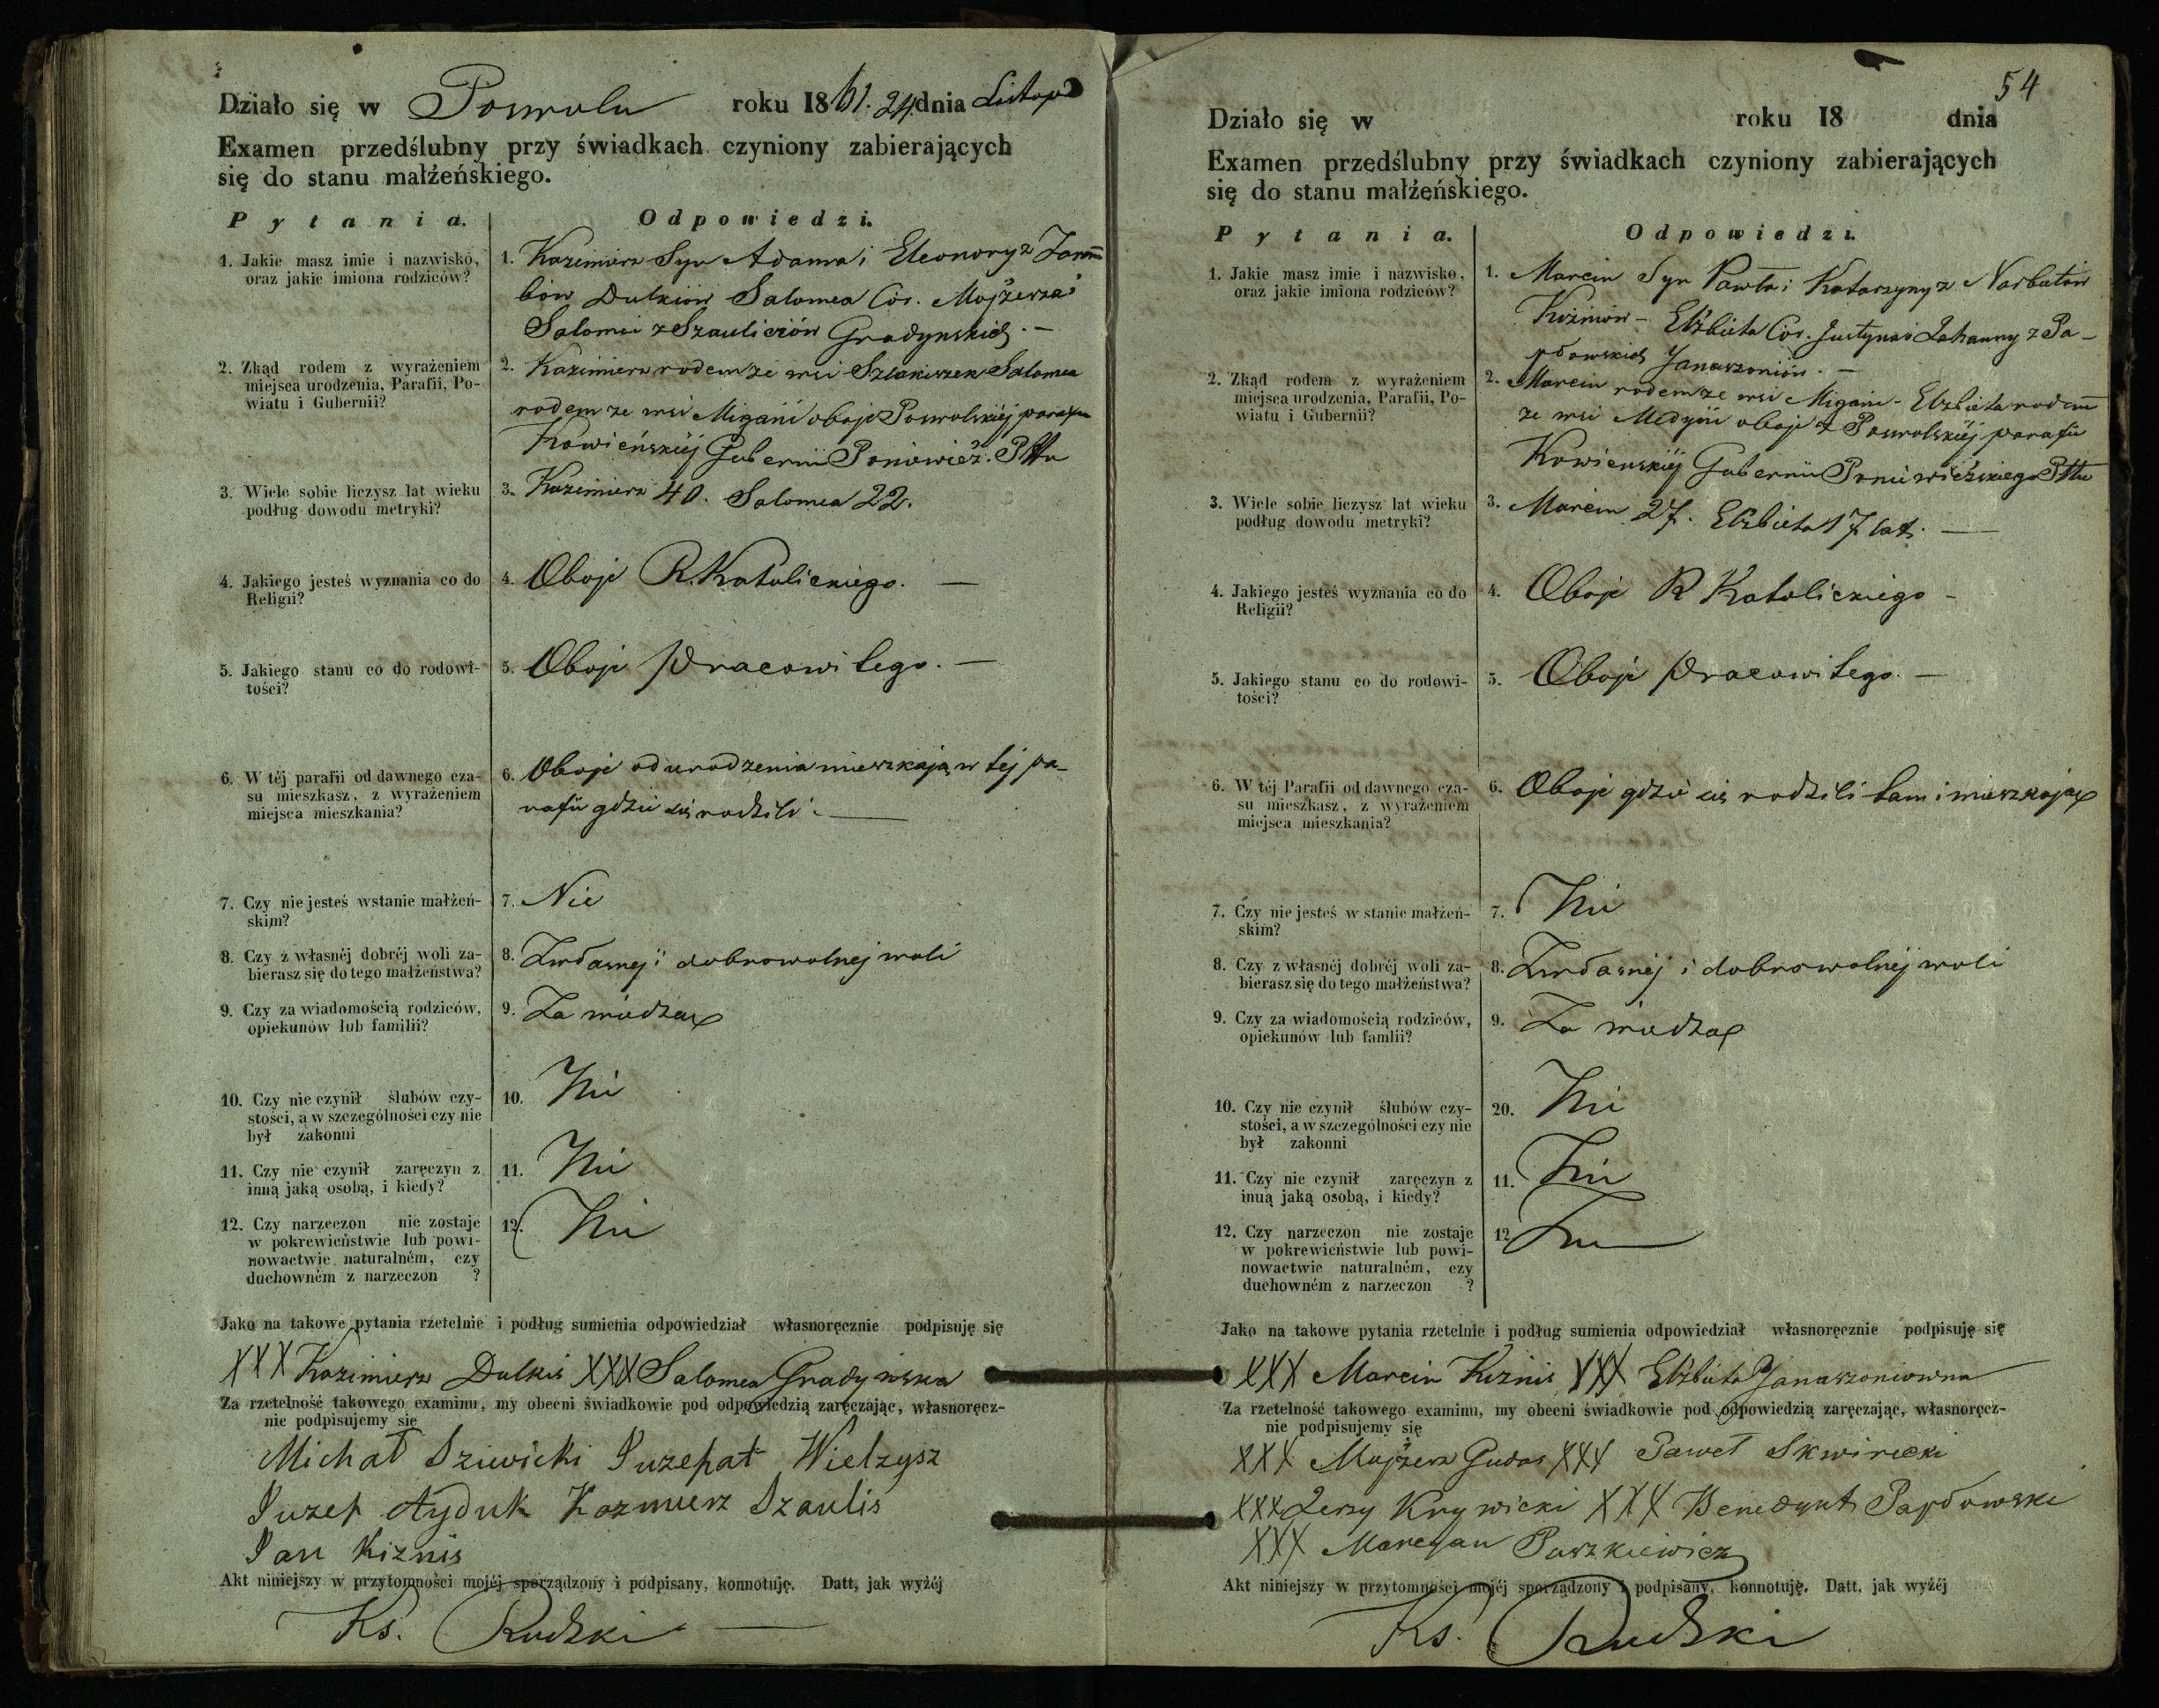 Działo się w Poswolu roku 1861. 24 dnia Listop
Examen przedślubny przy świadkach czyniony zabierających
się do stanu małżeńskiego.
Pytania. Odpowiedzi.
1. Jakie masz imie i nazwisko,
oraz jakie imiona rodziców?
1. Kazimierz Syn Adama i Eleonory z
bów Dulkiów Salomea Cór. Mojżesza i
Salomei z Szauliciów Gradynskich. —
2. Zkąd rodem z wyrażeniem
miejsca urodzenia, Parafii, Po-
wiatu i Gubernii?
2. Kazimierz rodem ze wsi Szlakiszek Salomea
rodem ze wsi Migani oboje Poswolskiéj parafii
Kowieńskiéj Gubernii Poniewież. Pttu
3. Wiele sobie liczysz lat wieku
podług dowodu metryki?
3. Kazimierz 40. Salomea 22.
4. Jakiego jesteś wyznania co do
Religii?
4. Oboje R. Katolickiego. —
5. Jakiego stanu co do rodowi-
tości?
5. Oboje pracowitego. —
6. W téj parafii od dawnego cza-
su mieszkasz, z wyrażeniem
miejsca mieszkania?
6. Oboje od urodzenia mieszkają w téj pa-
rafii gdzie się rodzili. —
7. Czy nie jesteś wstanie małżeń-
skim?
7. Nie
8. Czy z własnéj dobréj woli za-
bierasz się do tego małżeństwa?
8. Z własnej i dobrowolnej woli
9. Czy za wiadomością rodziców,
opiekunów lub familii?
9. Za wiedzą
10. Czy nie czynił ślubów czy-
stości, a w szczególności czy nie
był zakonni
10. Nie
11. Czy nie czynił zaręczyn z
inną jaką osobą, i kiedy?
11. Nie
12. Czy narzeczon nie zostaje
w pokrewieństwie lub powi-
nowactwie naturalném, czy
duchowném z narzeczon ?
12. Nie
Jako na takowe pytania rzetelnie i podług sumienia odpowiedział własnoręcznie podpisuję się
XXX Kazimierz Dulkis XXX Salomea Gradyńska
Za rzetelność takowego examinu, my obecni świadkowie pod odpowiedzią zaręczając, własnoręcz-
nie podpisujemy się
Michał Dziewicki Juzefat Wielzysz
Juzef Ayduk Kazmierz Szaulis
Jan Kiznis
Akt niniejszy w przytomności mojéj sporządzony i podpisany, konnotuję. Datt, jak wyżéj
Ks. Rudzki —
54
Działo się w roku 18 dnia
Examen przedślubny przy świadkach czyniony zabierających
się do stanu małżeńskiego.
Pytania. Odpowiedzi.
1. Jakie masz imie i nazwisko,
oraz jakie imiona rodziców?
1. Marcin Syn Pawła i Katarzyny z Norbutów
Kiżniów – Elżbieta Cór. Justyna i Johanny z Pa-
płowskich Janaszoniów. —
2. Zkąd rodem z wyrażeniem
miejsca urodzenia, Parafii, Po-
wiatu i Gubernii?
2. Marcin rodem ze wsi Migani – Elżbieta rodem
ze wsi Medyni oboje z Poswolskiéj parafii
Kowienskiéj Gubernii Poniewieżskiego Pttu
3. Wiele sobie liczysz lat wieku
podług dowodu metryki?
3. Marcin 27. Elżbieta 17 lat. —
4. Jakiego jesteś wyznania co do
Religii?
4. Oboje R Katolickiego –
5. Jakiego stanu co do rodowi-
tości?
5. Oboje pracowitego. —
6. W téj Parafii od dawnego cza-
su mieszkasz, z wyrażeniem
miejsca mieszkania?
6. Oboje gdzie się rodzili tam i mieszkają
7. Czy nie jesteś w stanie małżeń-
skim?
7. Nie
8. Czy z własnéj dobréj woli za-
bierasz się do tego małżeństwa?
8. Z własnéj i dobrowolnéj woli
9. Czy za wiadomością rodziców,
opiekunów lub famlii?
9. Za wiedzą
10. Czy nie czynił ślubów czy-
stości, a w szczególności czy nie
był zakonni
20. Nie
11. Czy nie czynił zaręczyn z
inuą jaką osobą, i kiedy?
11. Nie
12. Czy narzeczon nie zostaje
w pokrewieństwie lub powi-
nowactwie naturalném, czy
duchowném z narzeczon ?
12. Nie
Jako na takowe pytania rzetelnie i podług sumienia odpowiedział własnoręcznie podpisuję się
XXX Marcin Kiznis XXX Elżbieta Janaszoniowna
Za rzetelność takowego examinu, my obecni świadkowie pod odpowiedzią zaręczając, własnoręcz-
nie podpisujemy się
XXX Mojżesz Gudas XXX Paweł Skwirecki
XXX Jerzy Krywicki XXX Benedykt Papłowski
XXX Marcyan Paszkiewicz
Akt niniejszy w przytomności mojéj sporządzony i podpisany, konnotuję. Datt, jak wyżéj
Ks. Rudzki